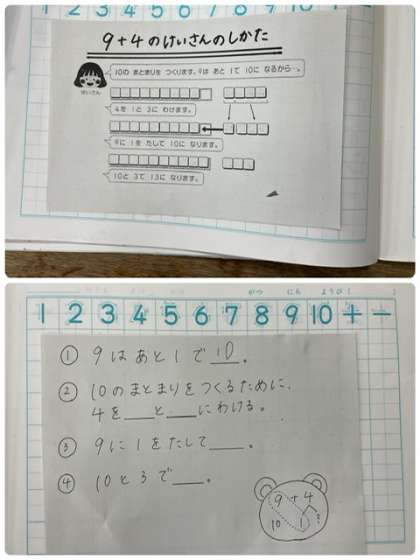 1 2 3 4 5 6 7 8 9 10
9+4のけいさんのしかた
10の まとまりを つくります。9は あと 1で 10に なるから…。
けいさん
4を 1と 3に わけます。
9に 1を たして 10に なります。
10と 3で 13に なります。
がつ にち ようび
1 2 3 4 5 6 7 8 9 10 + −
① 9はあと1で10。
② 10のまとまりをつくるために、
4を___と___にわける。
③ 9に1をたして____。
④ 10と3で____。
9+4
10 1 3